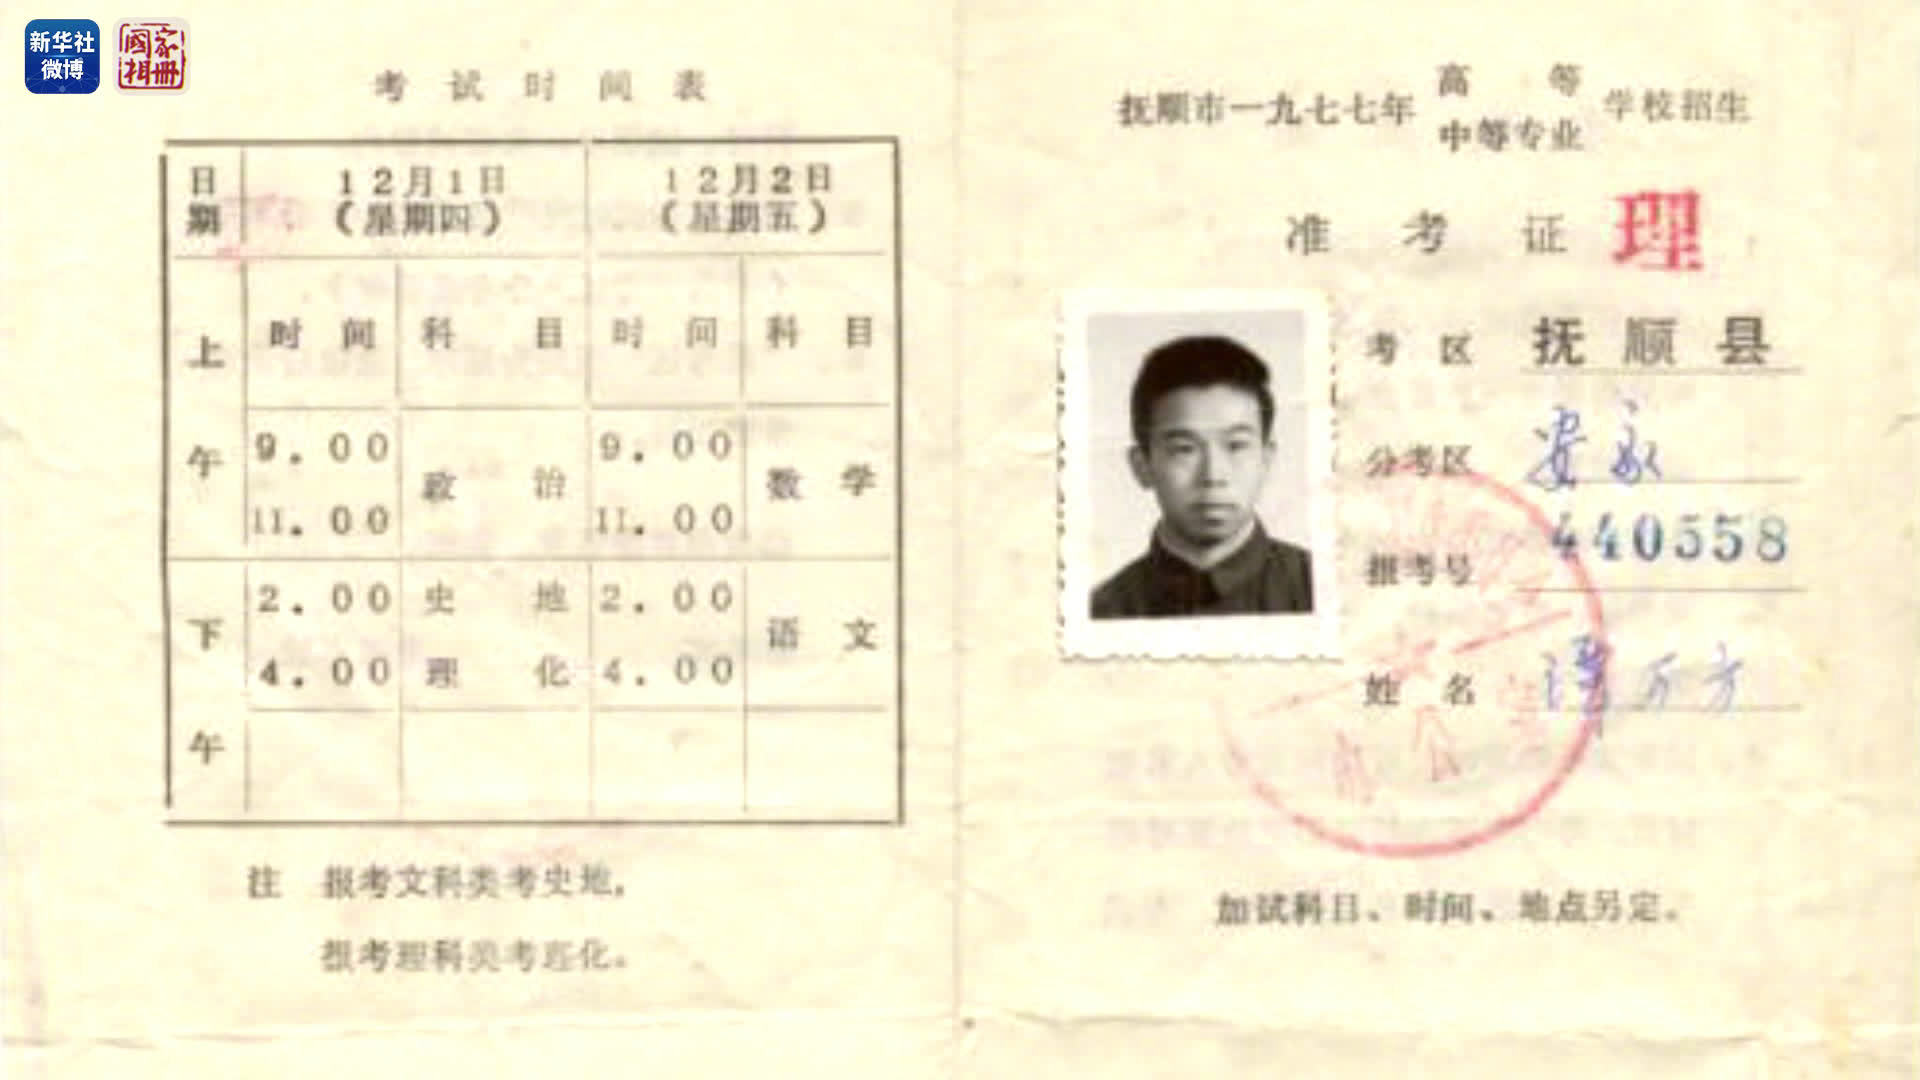 新华社
微博
國家
相冊
考试时间表
日期 12月1日 12月2日
(星期四) (星期五)
上午 时间 科目 时间 科目
9.00 9.00
政治 数学
11.00 11.00
下午 2.00 史地 2.00
语文
4.00 理化 4.00
注 报考文科类考史地,
报考理科类考理化。
抚顺市一九七七年 高等 学校招生
中等专业
准考证 理
考区 抚顺县
分考区 安家
报考号 440558
姓名 万方
加试科目、时间、地点另定。